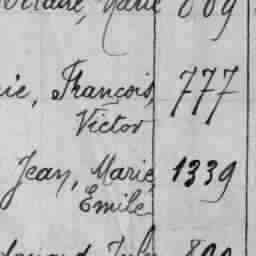 Marie 809
ie, François, 777
Victor
Jean, Marie, 1339
Émile